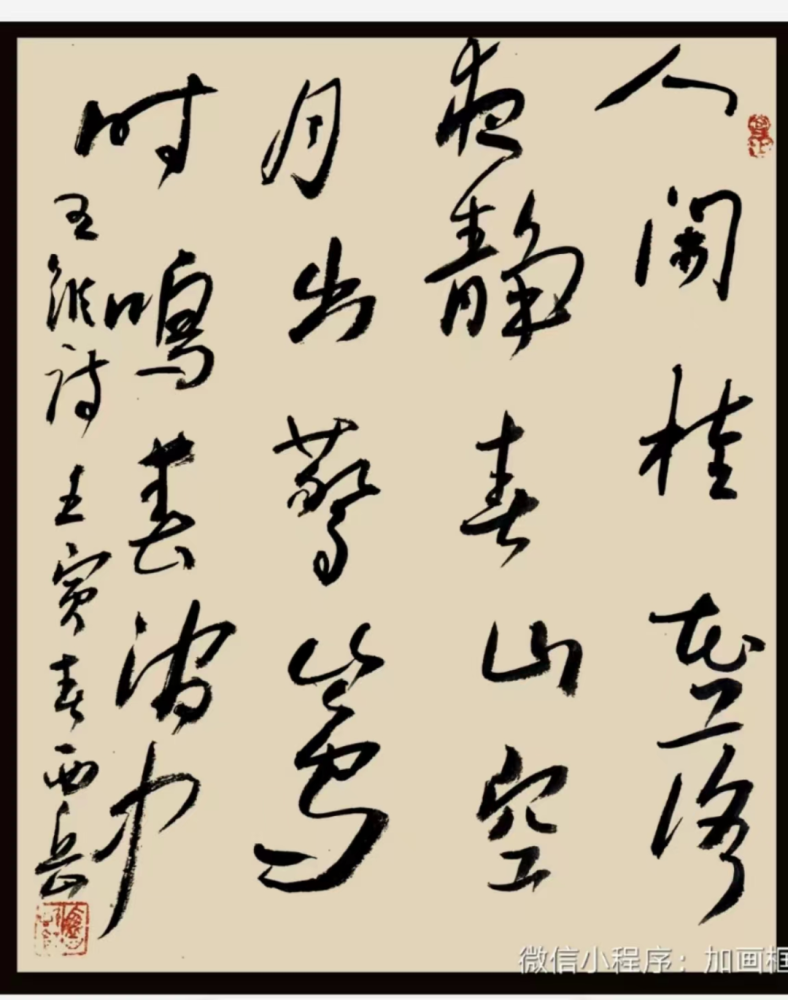 人闲桂花落
夜静春山空
月出驚山鸟
时鸣春涧中
王维诗 壬寅春西岳
微信小程序：加画框